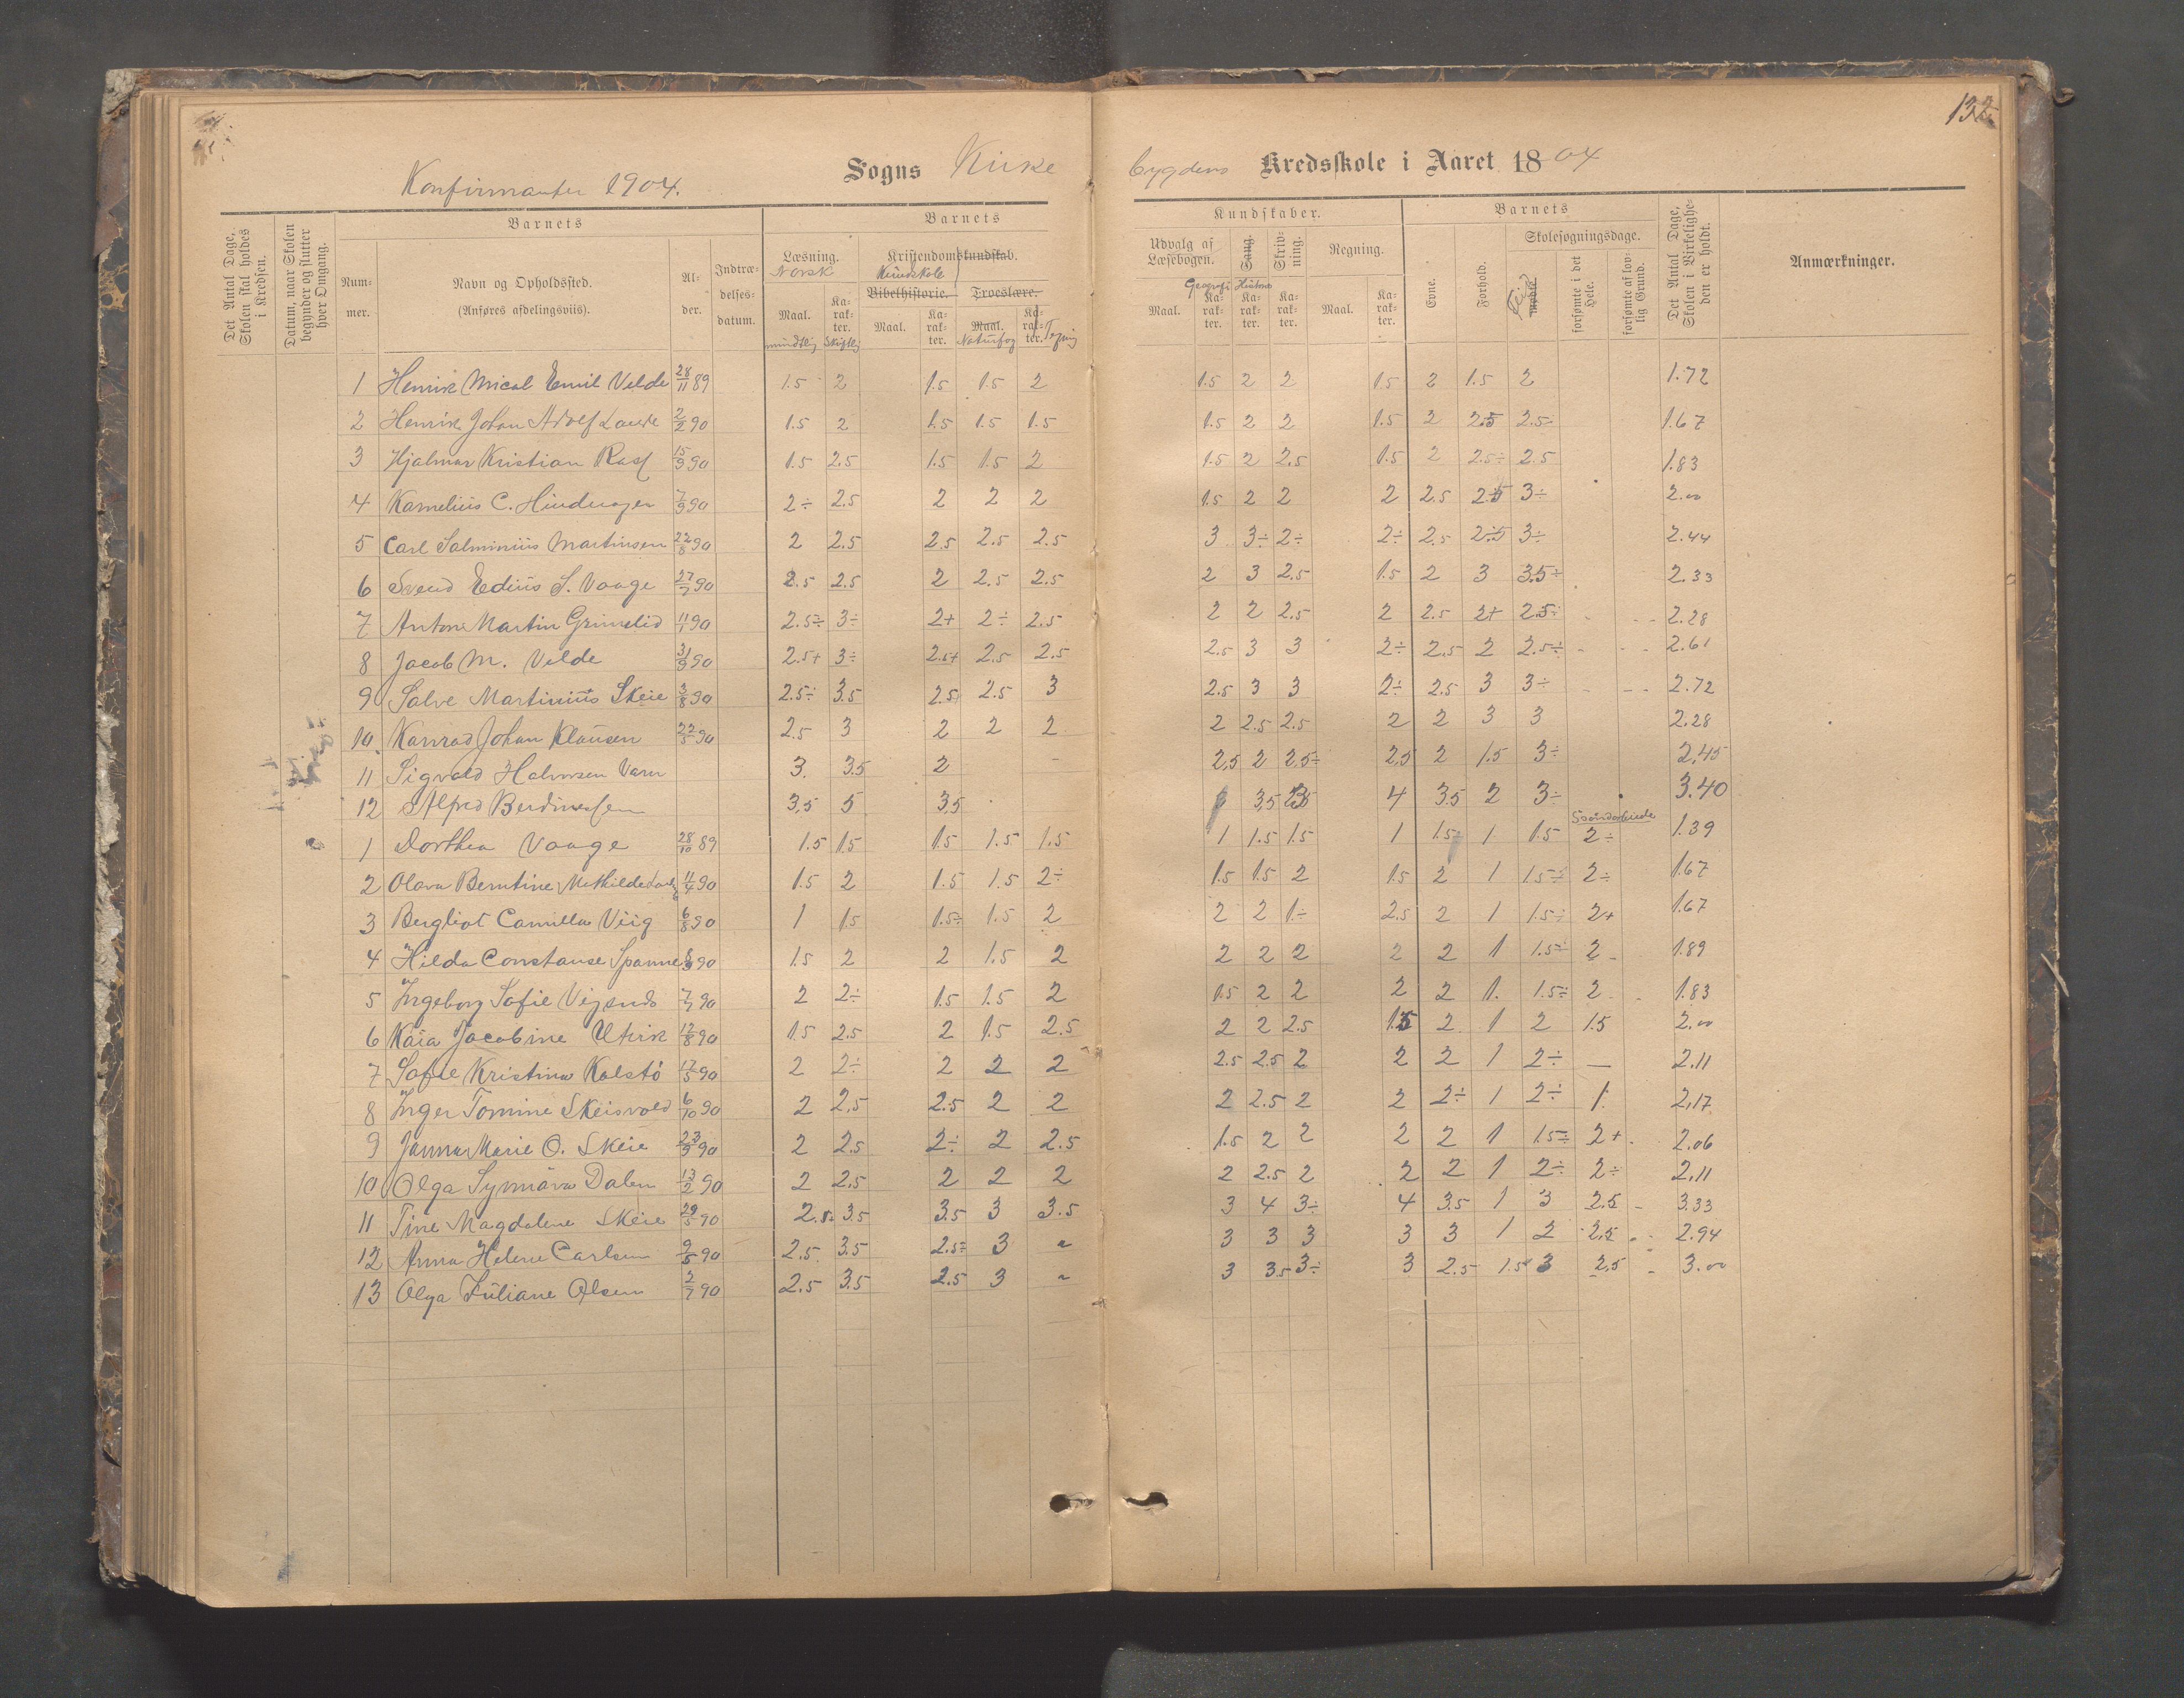 132
Konfirmanter 1904. Sogns Kirke bygdens Kredsskole i Aaret 1804
Det Antal Dage, Skolen skal holdes i Kredsen.
Datum, naar Skolen begynder og slutter hver Omgang.
Barnets
Nummer.
Navn og Opholdssted.
(Anføres afdelingsviis).
Alder.
Indtrædelsesdatum.
Barnets
Læsning. Norsk
Maal. mundtlig
Karakter. Skriftlig
Kristendomskundskab.
Bibelhistorie. Troeslære.
Maal. Karakter. Maal. Naturfag Karakter. Tegning
Kundskaber.
Udvalg af Læsebogen. Sang. Skrivning. Regning.
Geografi Historie
Maal. Karakter. Karakter. Karakter. Maal. Karakter.
Barnets
Evne. Forhold.
Skolesøgningsdage.
mødte. forsømte i det Hele. forsømte af lovlig Grund.
Det Antal Dage, Skolen i Virkeligheden er holdt.
Anmærkninger.
1 Henrik Mical Emil Velde 28/11 89 1.5 2 1.5 1.5 2 1.5 2 2 1.5 2 1.5 2 1.72
2 Henrik Johan Adolf 2/2 90 1.5 2 1.5 1.5 1.5 1.5 2 2 1.5 2 2.5 2.5÷ 1.67
3 Hjalmar Kristian 15/9 90 1.5 2.5 1.5 1.5 2 1.5 2 2.5 1.5 2 2.5÷ 2.5 1.83
4 Kornelius C. 7/9 90 2÷ 2.5 2 2 2 1.5 2 2 2 2.5 2.5 3÷ 2.00
5 Carl Salminius Martinsen 22/8 90 2 2.5 2.5 2.5 2.5 3 3÷ 2÷ 2÷ 2.5 2.5 3÷ 2.44
6 Svend Edius S. Vaage 27/7 90 2.5 2.5 2 2.5 2.5 2 3 2.5 1.5 2 3 3.5÷ 2.33
7 Anton Martin Grindelid 11/1 90 2.5÷ 3÷ 2+ 2÷ 2.5 2 2 2.5 2 2.5 2+ 2.5÷ 2.28
8 Jacob M. Velde 31/3 90 2.5+ 3÷ 2.5+ 2.5 2.5 2.5 3 3 2÷ 2.5 2 2.5÷ 2.61
9 Salve Martinius Skeie 3/8 90 2.5÷ 3.5 2.5 2.5 3 2.5 3 3 2÷ 2.5 3 3÷ 2.72
10 Konrad Johan Klausen 22/5 90 2.5 3 2 2 2 2 2.5 2.5 2 2 3 3 2.28
11 Sigvald Halvorsen 3. 3.5 2 2,5 2 2,5÷ 2,5 2 1.5 3÷ 2,45
12 Alfred 3,5 5 3,5 3,5 4 3.5 2 3÷ 3.40
1 Dorthea Vaage 28/10 89 1.5 1.5 1.5 1.5 1.5 1 1.5 1.5 1 1.5 1 1.5 2÷ 1.39
2 Olava Berntine Mathilde 11/4 90 1.5 2 1.5 1.5 2÷ 1.5 1.5 2 1.5 2 1 1.5÷ 2÷ 1.67
3 Bergliot Camilla Viig 6/8 90 1 1.5 1.5÷ 1.5 2 2 2 1÷ 2.5 2 1 1.5÷ 2+ 1.67
4 Hilda Constanse Spanne 90 1.5 2 2 1.5 2 2 2 2 2 2 1 1.5÷ 2 1.89
5 Ingeborg Sofie 7/7 90 2 2÷ 1.5 1.5 2 1.5 2 2 2 2 1. 1.5÷ 2 1.83
6 Kaia Jacobine Utvik 12/8 90 1.5 2.5 2 1.5 2.5 2 2 2.5 1.5 2 1 2 1.5 2.00
7 Sofie Kristina Kolstö 17/5 90 2 2÷ 2 2 2 2.5 2.5 2 2 2 1 2÷ — 2.11
8 Inger Tomine Skeisvold 6/10 90 2 2,5 2.5 2 2 2 2.5 2 2 2÷ 1 2÷ 1. 2,17
9 Janna Marie O. Skeie 23/9 90 2 2.5 2÷ 2 2.5 1.5 2 2 2 2 1 1.5÷ 2+ 2.06
10 Olga Synnöva Dalen 13/2 90 2 2,5 2 2 2 2 2.5 2 2 2 1 2÷ 2÷ 2,11
11 Tine Magdalene Skeie 29/5 90 2.5 3.5 3.5 3 3.5 3 4 3÷ 4 3.5 1 3 2.5 3.33
12 Anna Helene Carlsen 9/5 90 2.5 3.5 2.5÷ 3 ~ 3 3 3 3 3 1 2 2,5 2.94
13 Olga Juliane Olsen 2/7 90 2.5 3.5 2.5 3 ~ 3 3.5 3÷ 3 2.5 1.5 3 2.5 3.00